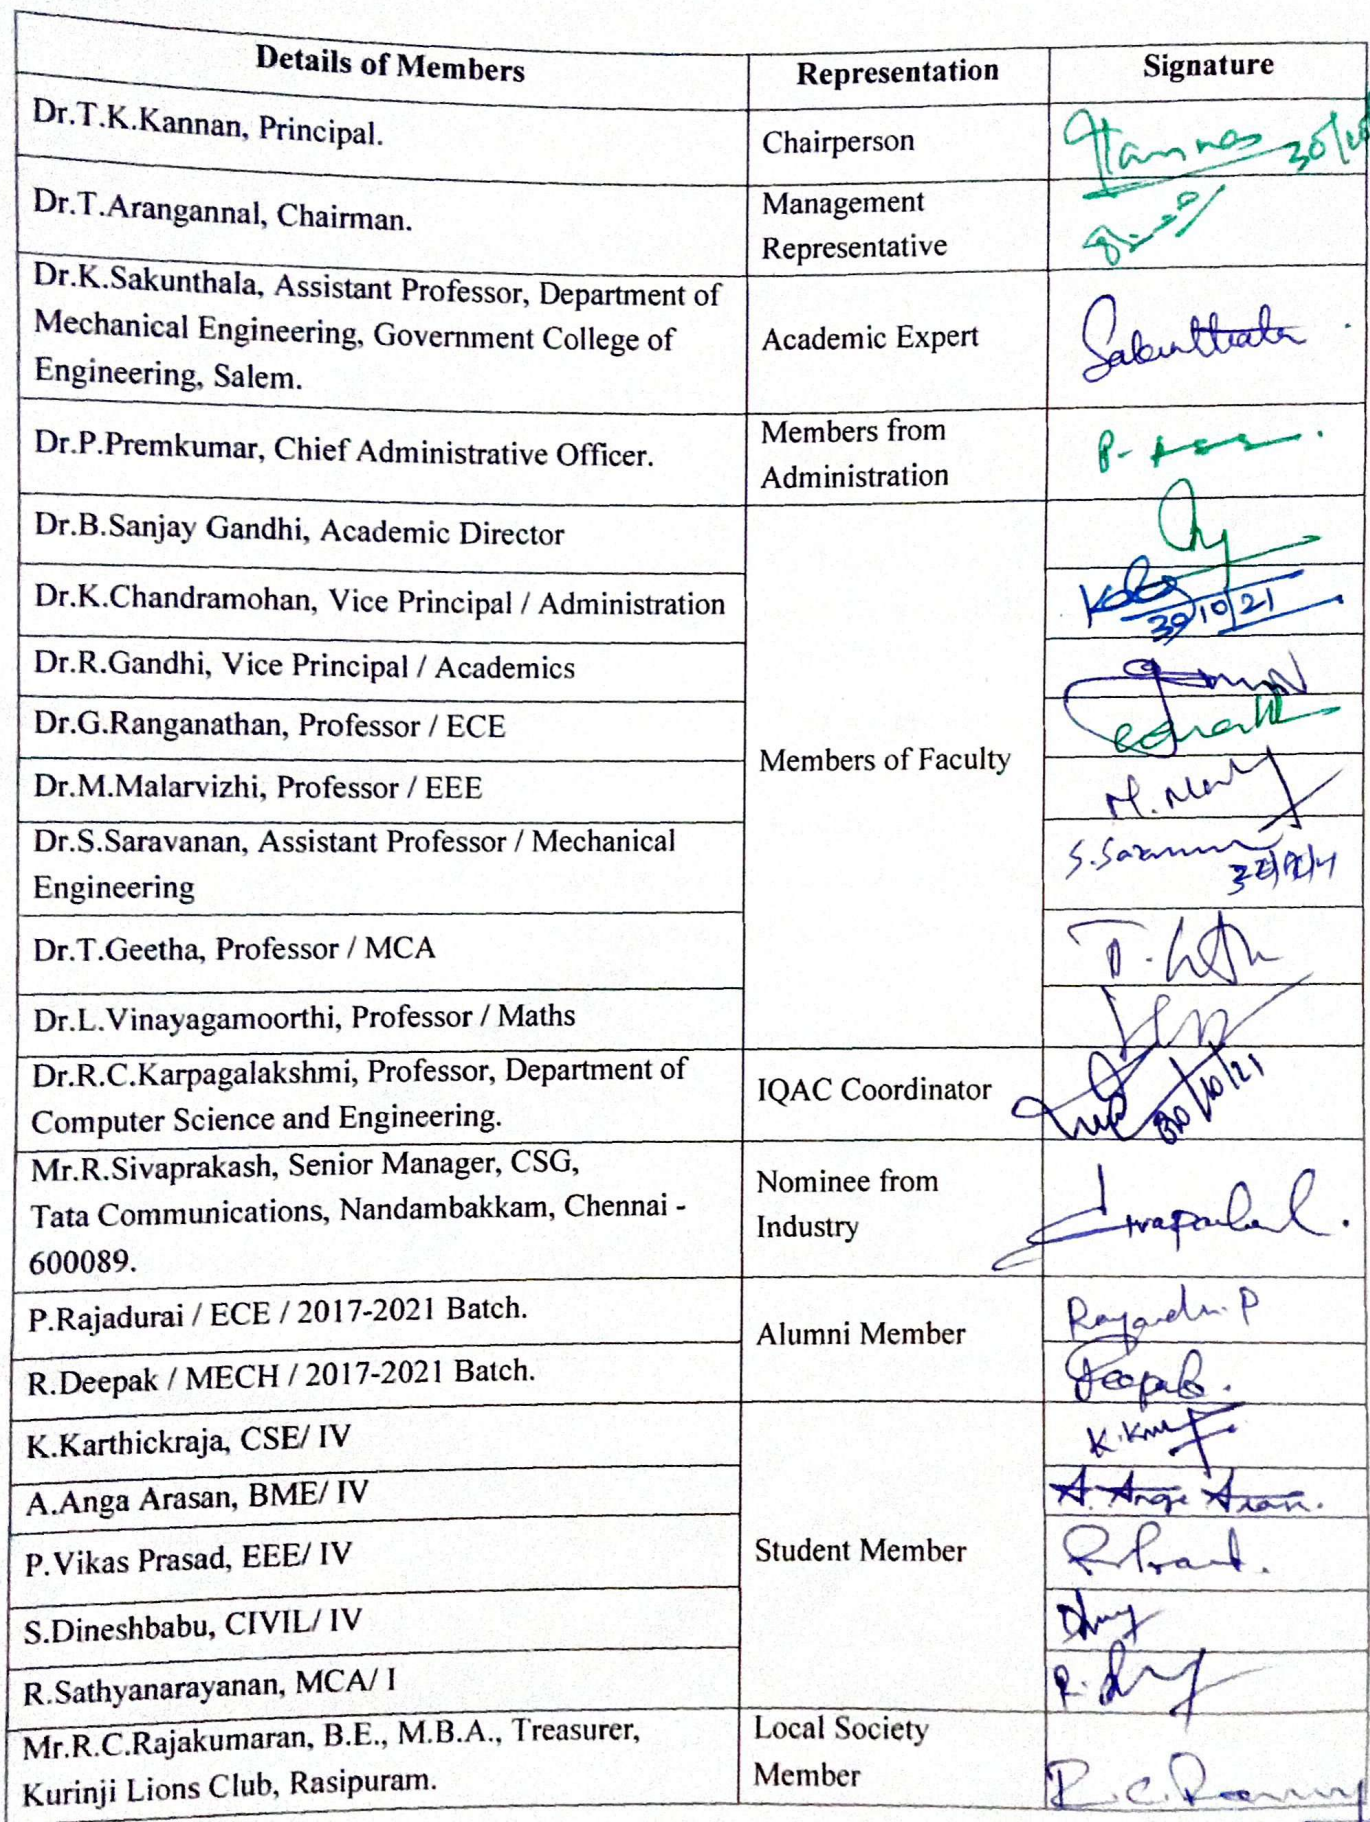 Details of Members Representation Signature
Dr.T.K.Kannan, Principal. Chairperson
Dr.T.Arangannal, Chairman. Management
Representative
Dr.K.Sakunthala, Assistant Professor, Department of
Mechanical Engineering, Government College of
Engineering, Salem.
Academic Expert Sakunthala
Dr.P.Premkumar, Chief Administrative Officer. Members from
Administration
Dr.B.Sanjay Gandhi, Academic Director
Dr.K.Chandramohan, Vice Principal / Administration
30/10/21
Dr.R.Gandhi, Vice Principal / Academics
Dr.G.Ranganathan, Professor / ECE
Members of Faculty
Dr.M.Malarvizhi, Professor / EEE
Dr.S.Saravanan, Assistant Professor / Mechanical
Engineering
Dr.T.Geetha, Professor / MCA
Dr.L.Vinayagamoorthi, Professor / Maths
Dr.R.C.Karpagalakshmi, Professor, Department of
Computer Science and Engineering.
IQAC Coordinator
30/10/21
Mr.R.Sivaprakash, Senior Manager, CSG,
Tata Communications, Nandambakkam, Chennai -
600089.
Nominee from
Industry
P.Rajadurai / ECE / 2017-2021 Batch.
Alumni Member
R.Deepak / MECH / 2017-2021 Batch. Deepak.
K.Karthickraja, CSE/ IV
A.Anga Arasan, BME/ IV
P.Vikas Prasad, EEE/ IV
Student Member
S.Dineshbabu, CIVIL/ IV
R.Sathyanarayanan, MCA/ I
Mr.R.C.Rajakumaran, B.E., M.B.A., Treasurer,
Kurinji Lions Club, Rasipuram.
Local Society
Member